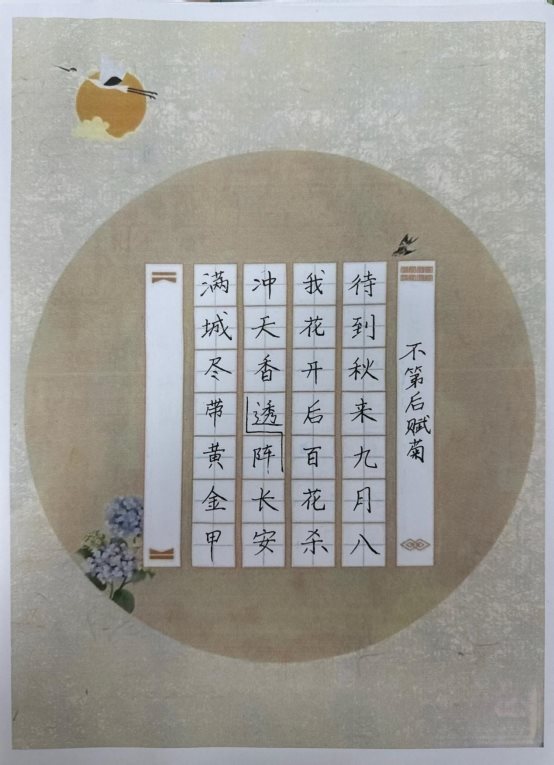 不第后赋菊
待到秋来九月八
我花开后百花杀
冲天香透阵长安
满城尽带黄金甲